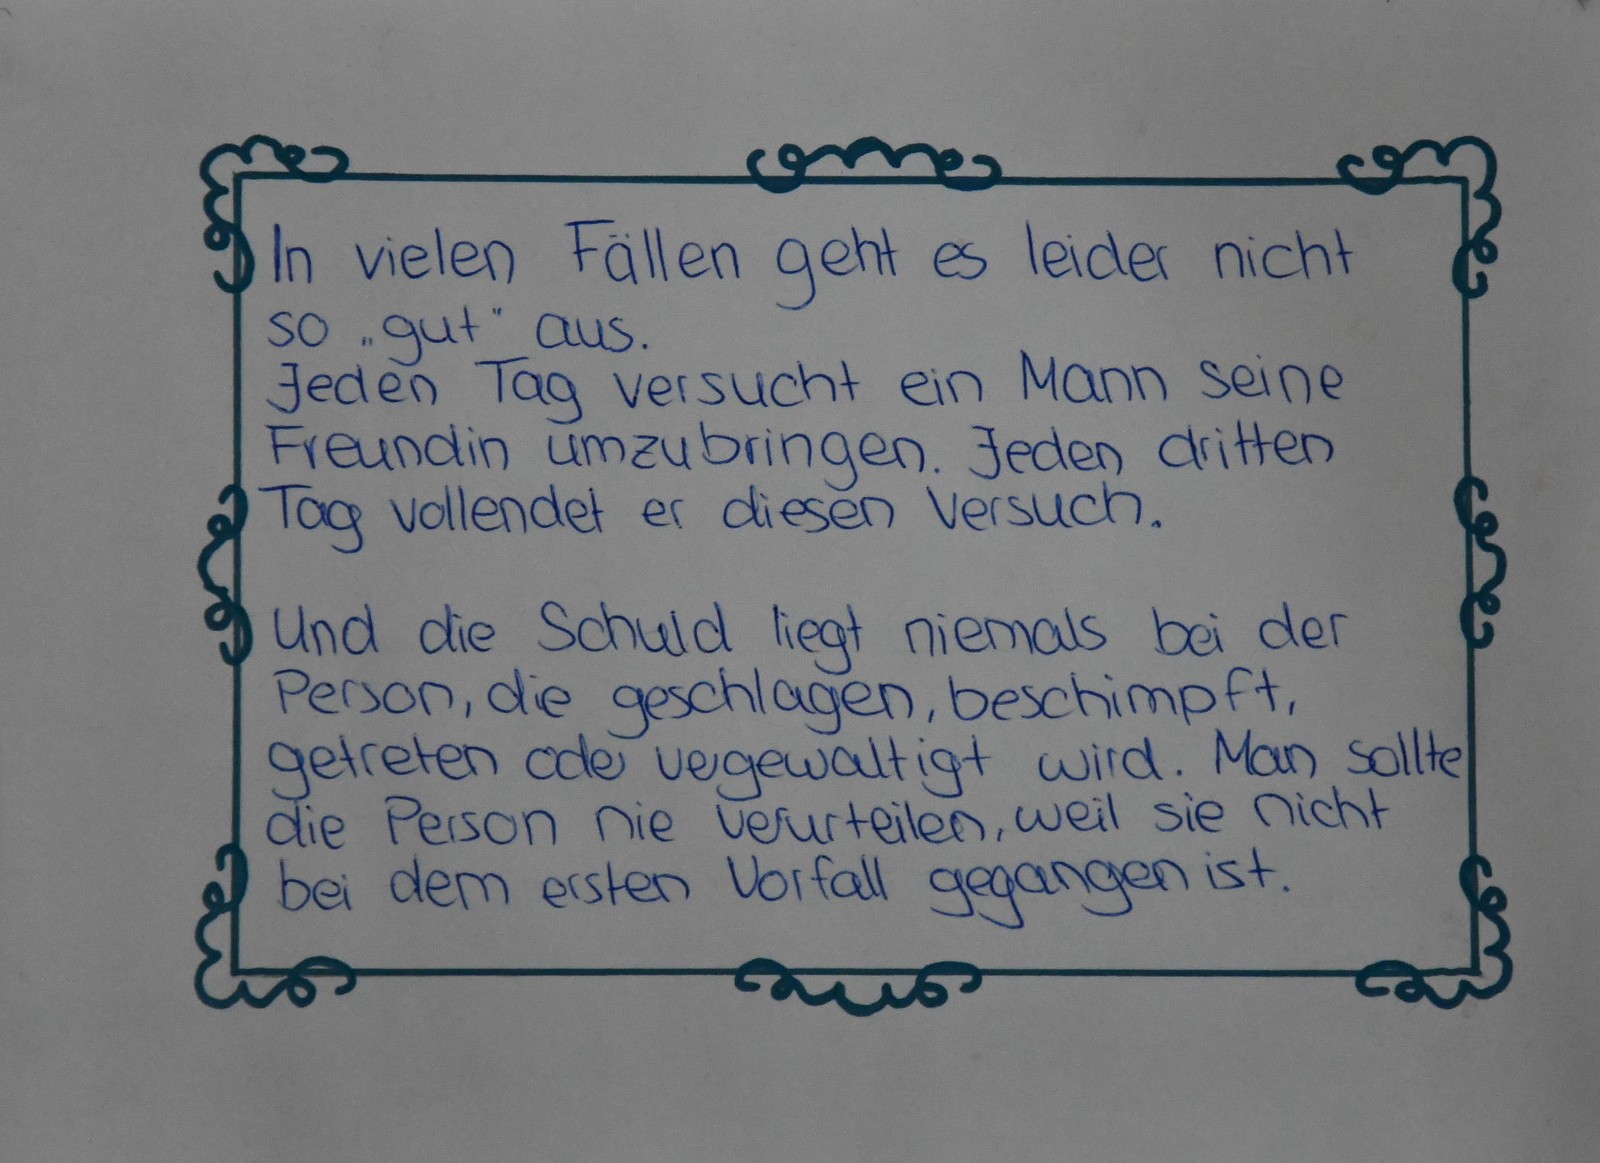 In vielen Fällen geht es leider nicht
so „gut" aus.
Jeden Tag versucht ein Mann seine
Freundin umzubringen. Jeden dritten
Tag vollendet er diesen Versuch.
Und die Schuld liegt niemals bei der
Person, die geschlagen, beschimpft,
getreten oder vergewaltigt wird. Man sollte
die Person nie verurteilen, weil sie nicht
bei dem ersten Vorfall gegangen ist.